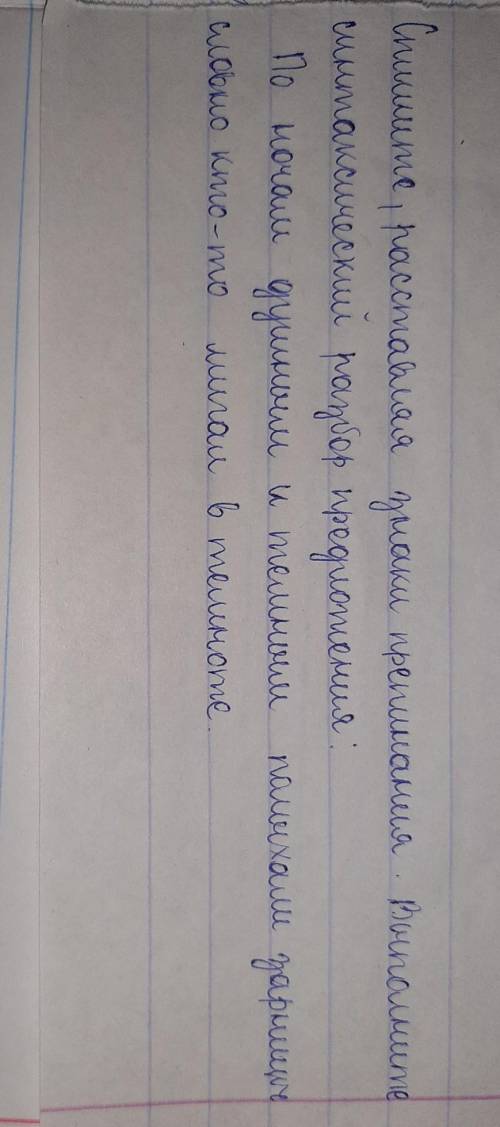 Спишите, расставляя знаки препинания. Выполните
синтаксический разбор предложения:
По ночам душным и темным полыхали зарницы
словно кто-то мигал в темноте.